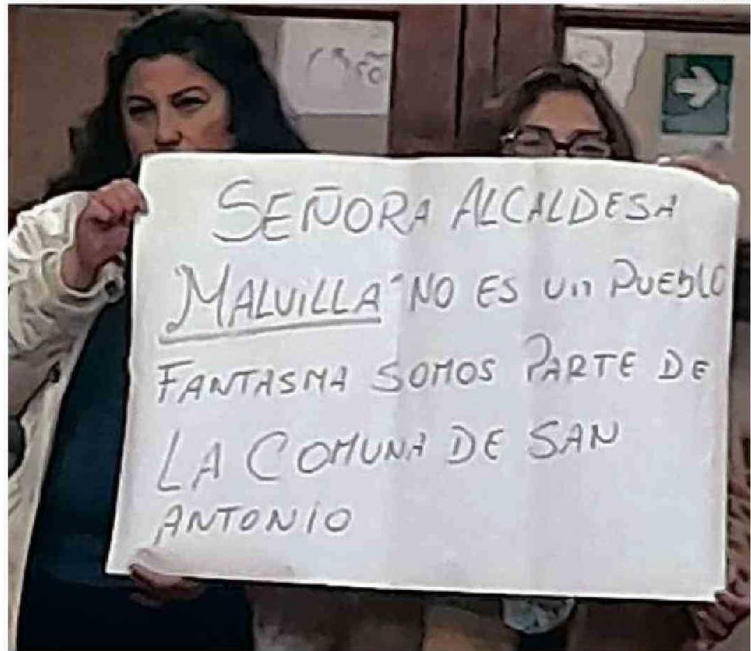 SEÑORA ALCALDESA
MALVILLA NO ES UN PUEBLO
FANTASMA SOMOS PARTE DE
LA COMUNA DE SAN
ANTONIO